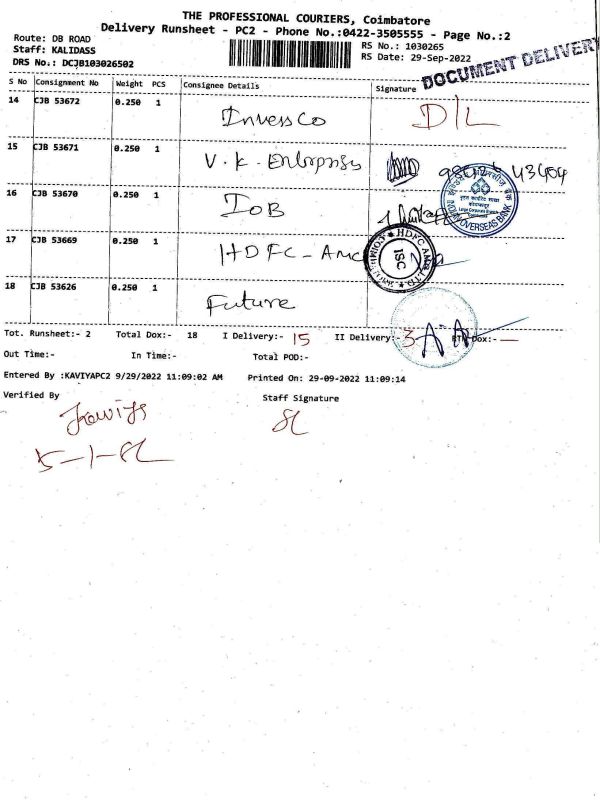 THE PROFESSIONAL COURIERS, Coimbatore
Delivery Runsheet - PC2 - Phone No.:0422-3505555 - Page No.:2
Route: DB ROAD
RS No.: 1030265
Staff: KALIDASS
RS Date: 29-Sep-2022
DRS No.: DCJB103026502
DOCUMENT DELIVERY
S No Consignment No Weight PCS Consignee Details Signature
14 CJB 53672 0.250 1 Invessco D/L
15 CJB 53671 0.250 1 V.K. Enterprises
16 CJB 53670 0.250 1 IOB
INDIAN OVERSEAS BANK
17 CJB 53669 0.250 1 HDFC - AMC
HDFC AMC
ISC
18 CJB 53626 0.250 1 Future
Tot. Runsheet:- 2 Total Dox:- 18 I Delivery:- 15 II Delivery:- 3 RTN Dox:- —
Out Time:- In Time:- Total POD:-
Entered By :KAVIYAPC2 9/29/2022 11:09:02 AM Printed On: 29-09-2022 11:09:14
Verified By Staff Signature